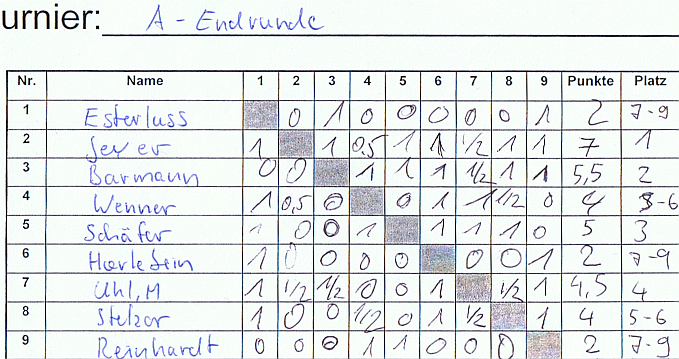 urnier: A - Endrunde
Nr. Name 1 2 3 4 5 6 7 8 9 Punkte Platz
1 Esterluss 0 1 0 0 0 0 0 1 2 7-9
2 1 1 0,5 1 1 1/2 1 1 7 1
3 Barmann 0 0 1 1 1 1/2 1 1 5,5 2
4 Wenner 1 0,5 0 0 1 1 1/2 0 4 5-6
5 Schäfer 1 0 0 1 1 1 1 0 5 3
6 1 0 0 0 0 0 0 1 2 7-9
7 Uhl, M 1 1/2 1/2 0 0 1 1/2 1 4,5 4
8 Stelzer 1 0 0 1/2 0 1 1/2 1 4 5-6
9 Reinhardt 0 0 0 1 1 0 0 0 2 7-9